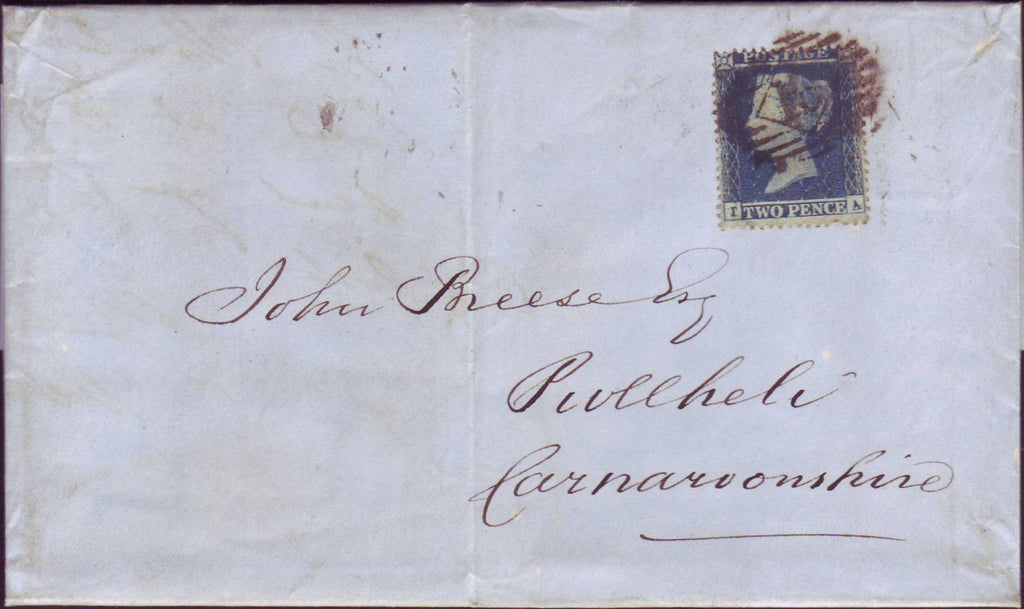 POSTAGE
T TWO PENCE A
John Breese Esq
Pwllheli
Carnarvonshire